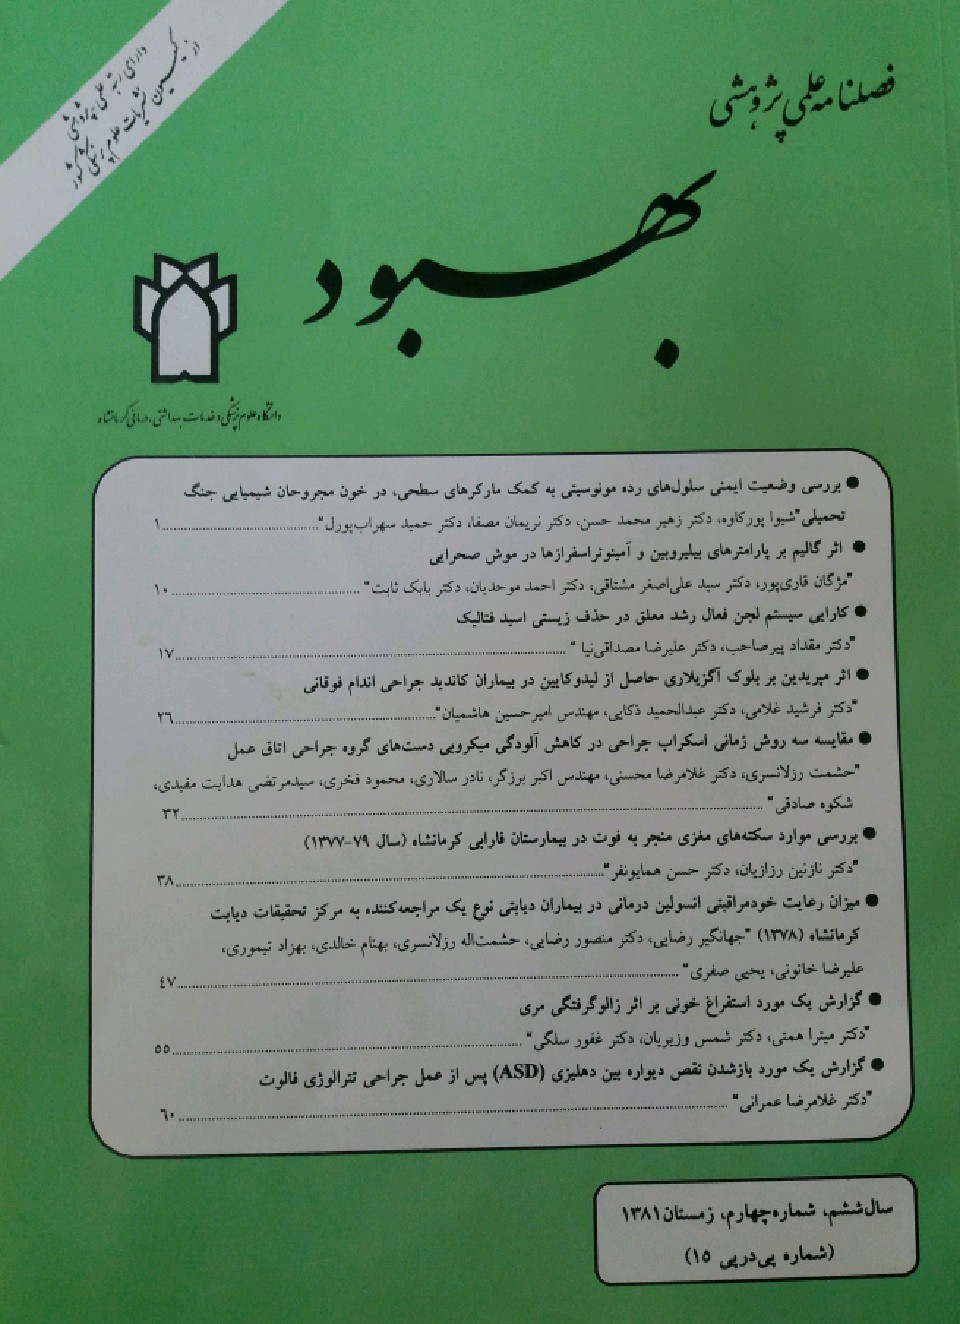 دارای رتبه علمی پژوهشی
از کمیسیون نشریات علوم پزشکی کشور
فصلنامه علمی پژوهشی
بهبود
دانشگاه علوم پزشکی و خدمات بهداشتی، درمانی کرمانشاه
● بررسی وضعیت ایمنی سلول‌های رده مونوسیتی به کمک مارکرهای سطحی، در خون مجروحان شیمیایی جنگ
تحمیلی "شیوا پورکاوه، دکتر زهیر محمد حسن، دکتر نریمان مصفا، دکتر حمید سهراب‌پورل" ........ ۱
● اثر گالیم بر پارامترهای بیلیروبین و آمینوتراسفرازها در موش صحرایی
"مژگان قاری‌پور، دکتر سید علی‌اصغر مشتاقی، دکتر احمد موحدیان، دکتر بابک ثابت" ........ ۱۰
● کارایی سیستم لجن فعال رشد معلق در حذف زیستی اسید فتالیک
"دکتر مقداد پیرصاحب، دکتر علیرضا مصداقی‌نیا " ........ ۱۷
● اثر مپریدین بر بلوک آگزیلاری حاصل از لیدوکایین در بیماران کاندید جراحی اندام فوقانی
"دکتر فرشید غلامی، دکتر عبدالحمید ذکایی، مهندس امیرحسین هاشمیان" ........ ۲۶
● مقایسه سه روش زمانی اسکراب جراحی در کاهش آلودگی میکروبی دست‌های گروه جراحی اتاق عمل
"حشمت رزلانسری، دکتر غلامرضا محسنی، مهندس اکبر برزگر، نادر سالاری، محمود فخری، سیدمرتضی هدایت مفیدی،
شکوه صادقی" ........ ۳۲
● بررسی موارد سکته‌های مغزی منجر به فوت در بیمارستان فارابی کرمانشاه (سال ۷۹-۱۳۷۷)
"دکتر نازنین رزازیان، دکتر حسن همایونفر" ........ ۳۸
● میزان رعایت خودمراقبتی انسولین درمانی در بیماران دیابتی نوع یک مراجعه‌کننده به مرکز تحقیقات دیابت
کرمانشاه (۱۳۷۸) "جهانگیر رضایی، دکتر منصور رضایی، حشمت‌اله رزلانسری، بهنام خالدی، بهزاد تیموری،
علیرضا خاتونی، یحیی صفری" ........ ۴۷
● گزارش یک مورد استفراغ خونی بر اثر زالوگرفتگی مری
"دکتر میترا همتی، دکتر شمس وزیریان، دکتر غفور سلگی" ........ ۵۵
● گزارش یک مورد بازشدن نقص دیواره بین دهلیزی (ASD) پس از عمل جراحی تترالوژی فالوت
"دکتر غلامرضا عمرانی" ........ ۶۰
سال ششم، شماره چهارم، زمستان ۱۳۸۱
(شماره پی‌درپی ۱۵)